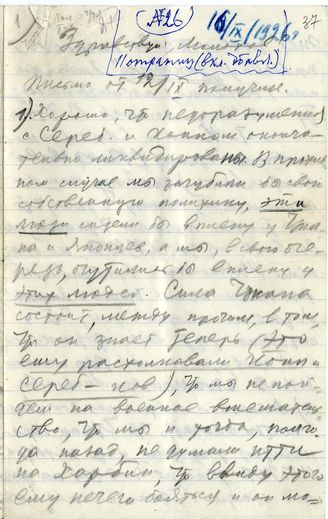 1)
(№26)
16/IX/1926г
37
Здравствуй, Молотов
11 страниц (вкл. добавл.)
Письмо от 12/IX получил.
1) Хорошо, чт недоразумения
с Сереб. и Коппом оконча-
тельно ликвидированы. В против-
ном случае мы загубили бы свою
собственную политику, эти
люди сидели бы в плену у Чжа-
на и Японцев, а мы, в свою оче-
редь, очутились бы в плену у
этих людей. Сила Чжана
состоит, между прочим, в том,
чт он знает теперь (это
ему растолковали Копп и
Сереб-ков), чт мы не пой-
дем на военное вмешатель-
ство, чт мы и тогда, полго-
да назад, не думали итти
на Харбин, чт ввиду этого
ему нечего бояться и он мо-